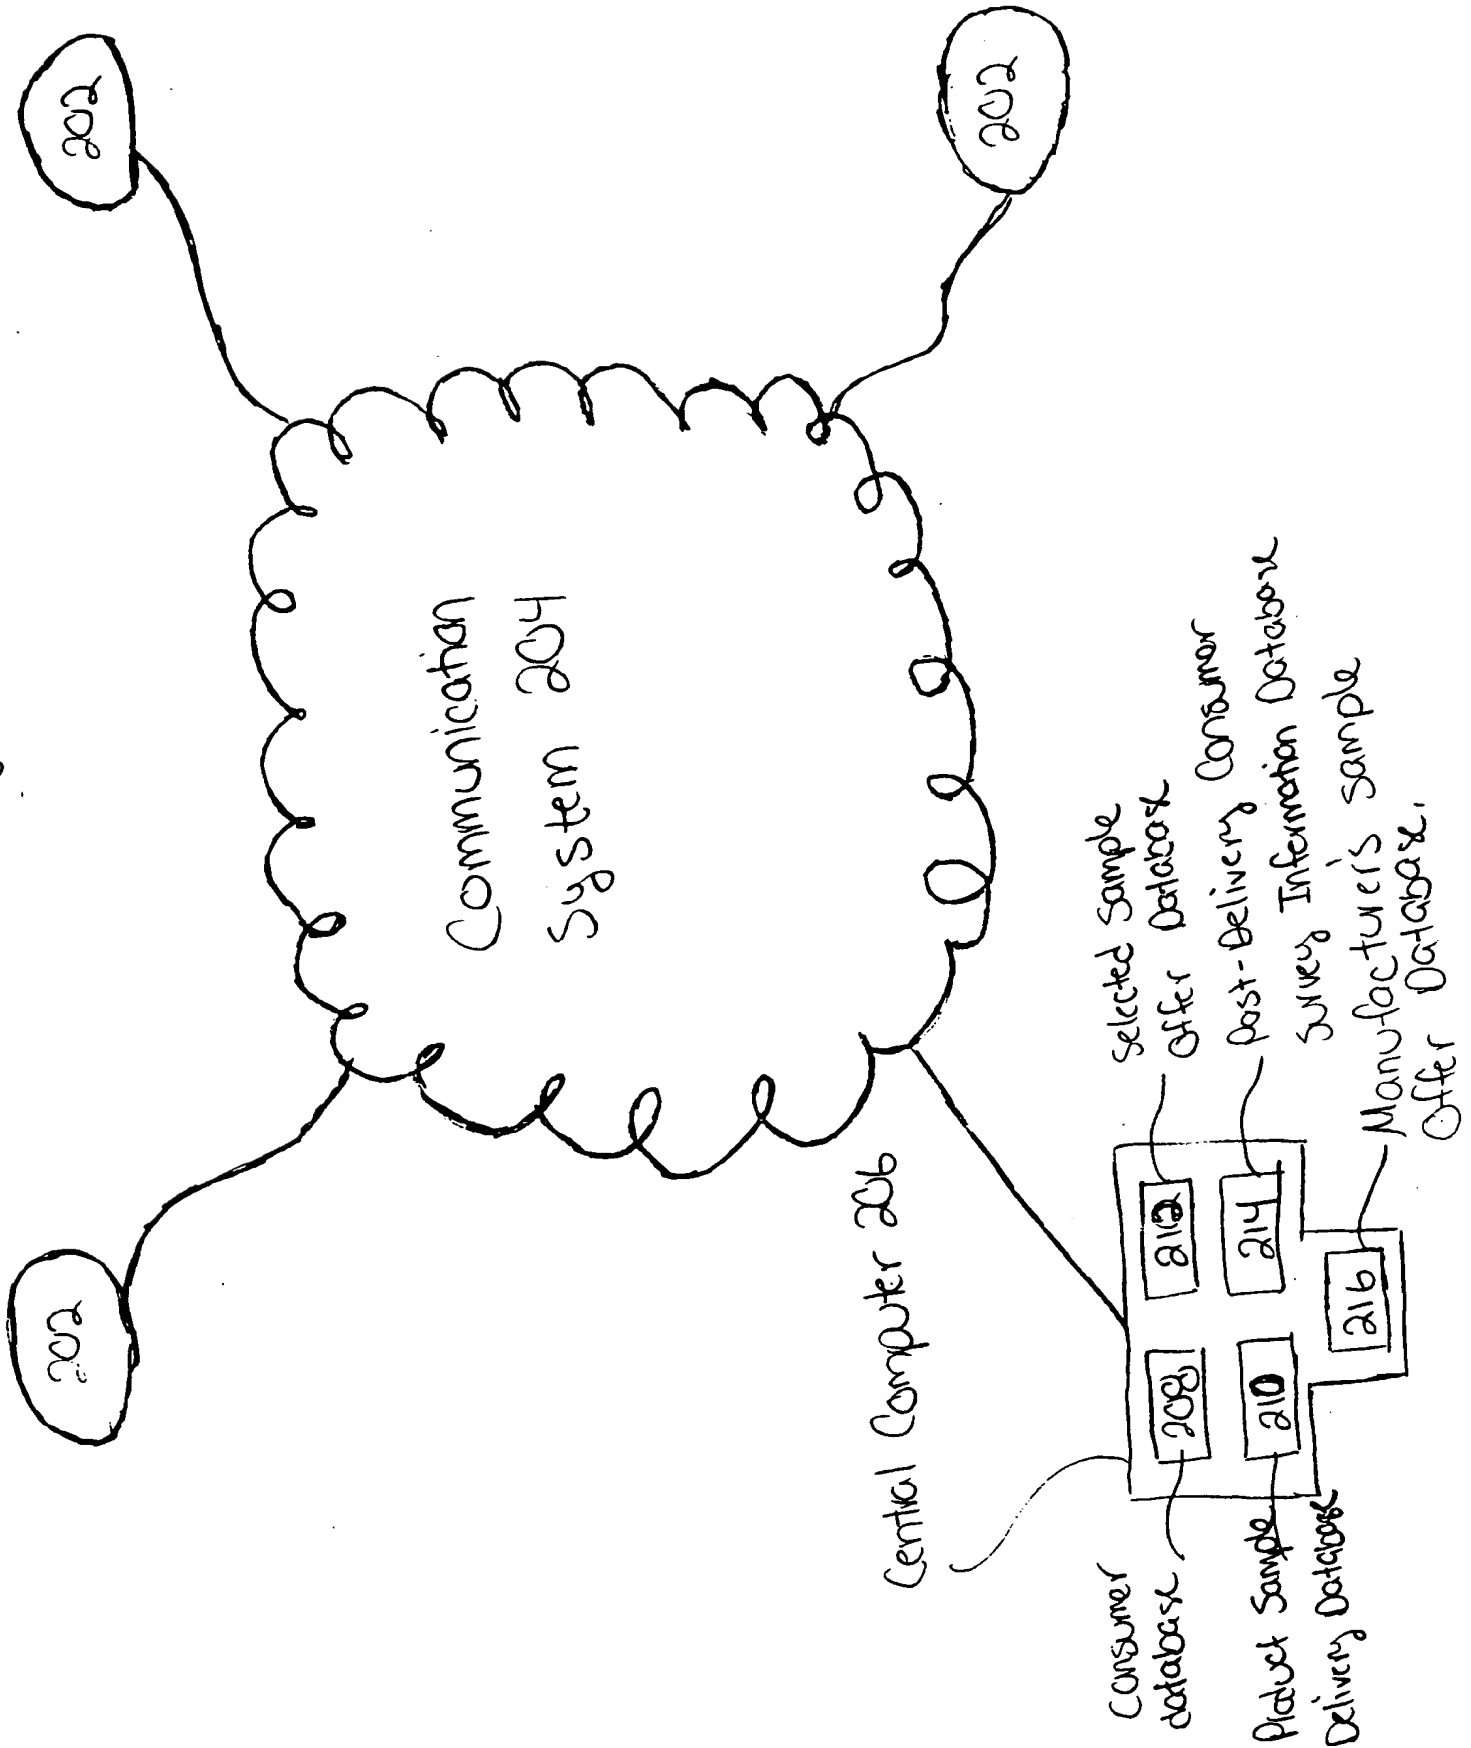 202
202
202
Communication
System 204
Central Computer 206
Consumer
database
208
212
Selected Sample
Offer Database
Product Sample
Delivery Database
210
214
Post-Delivery Consumer
Survey Information Database
216
Manufacturers Sample
Offer Database.